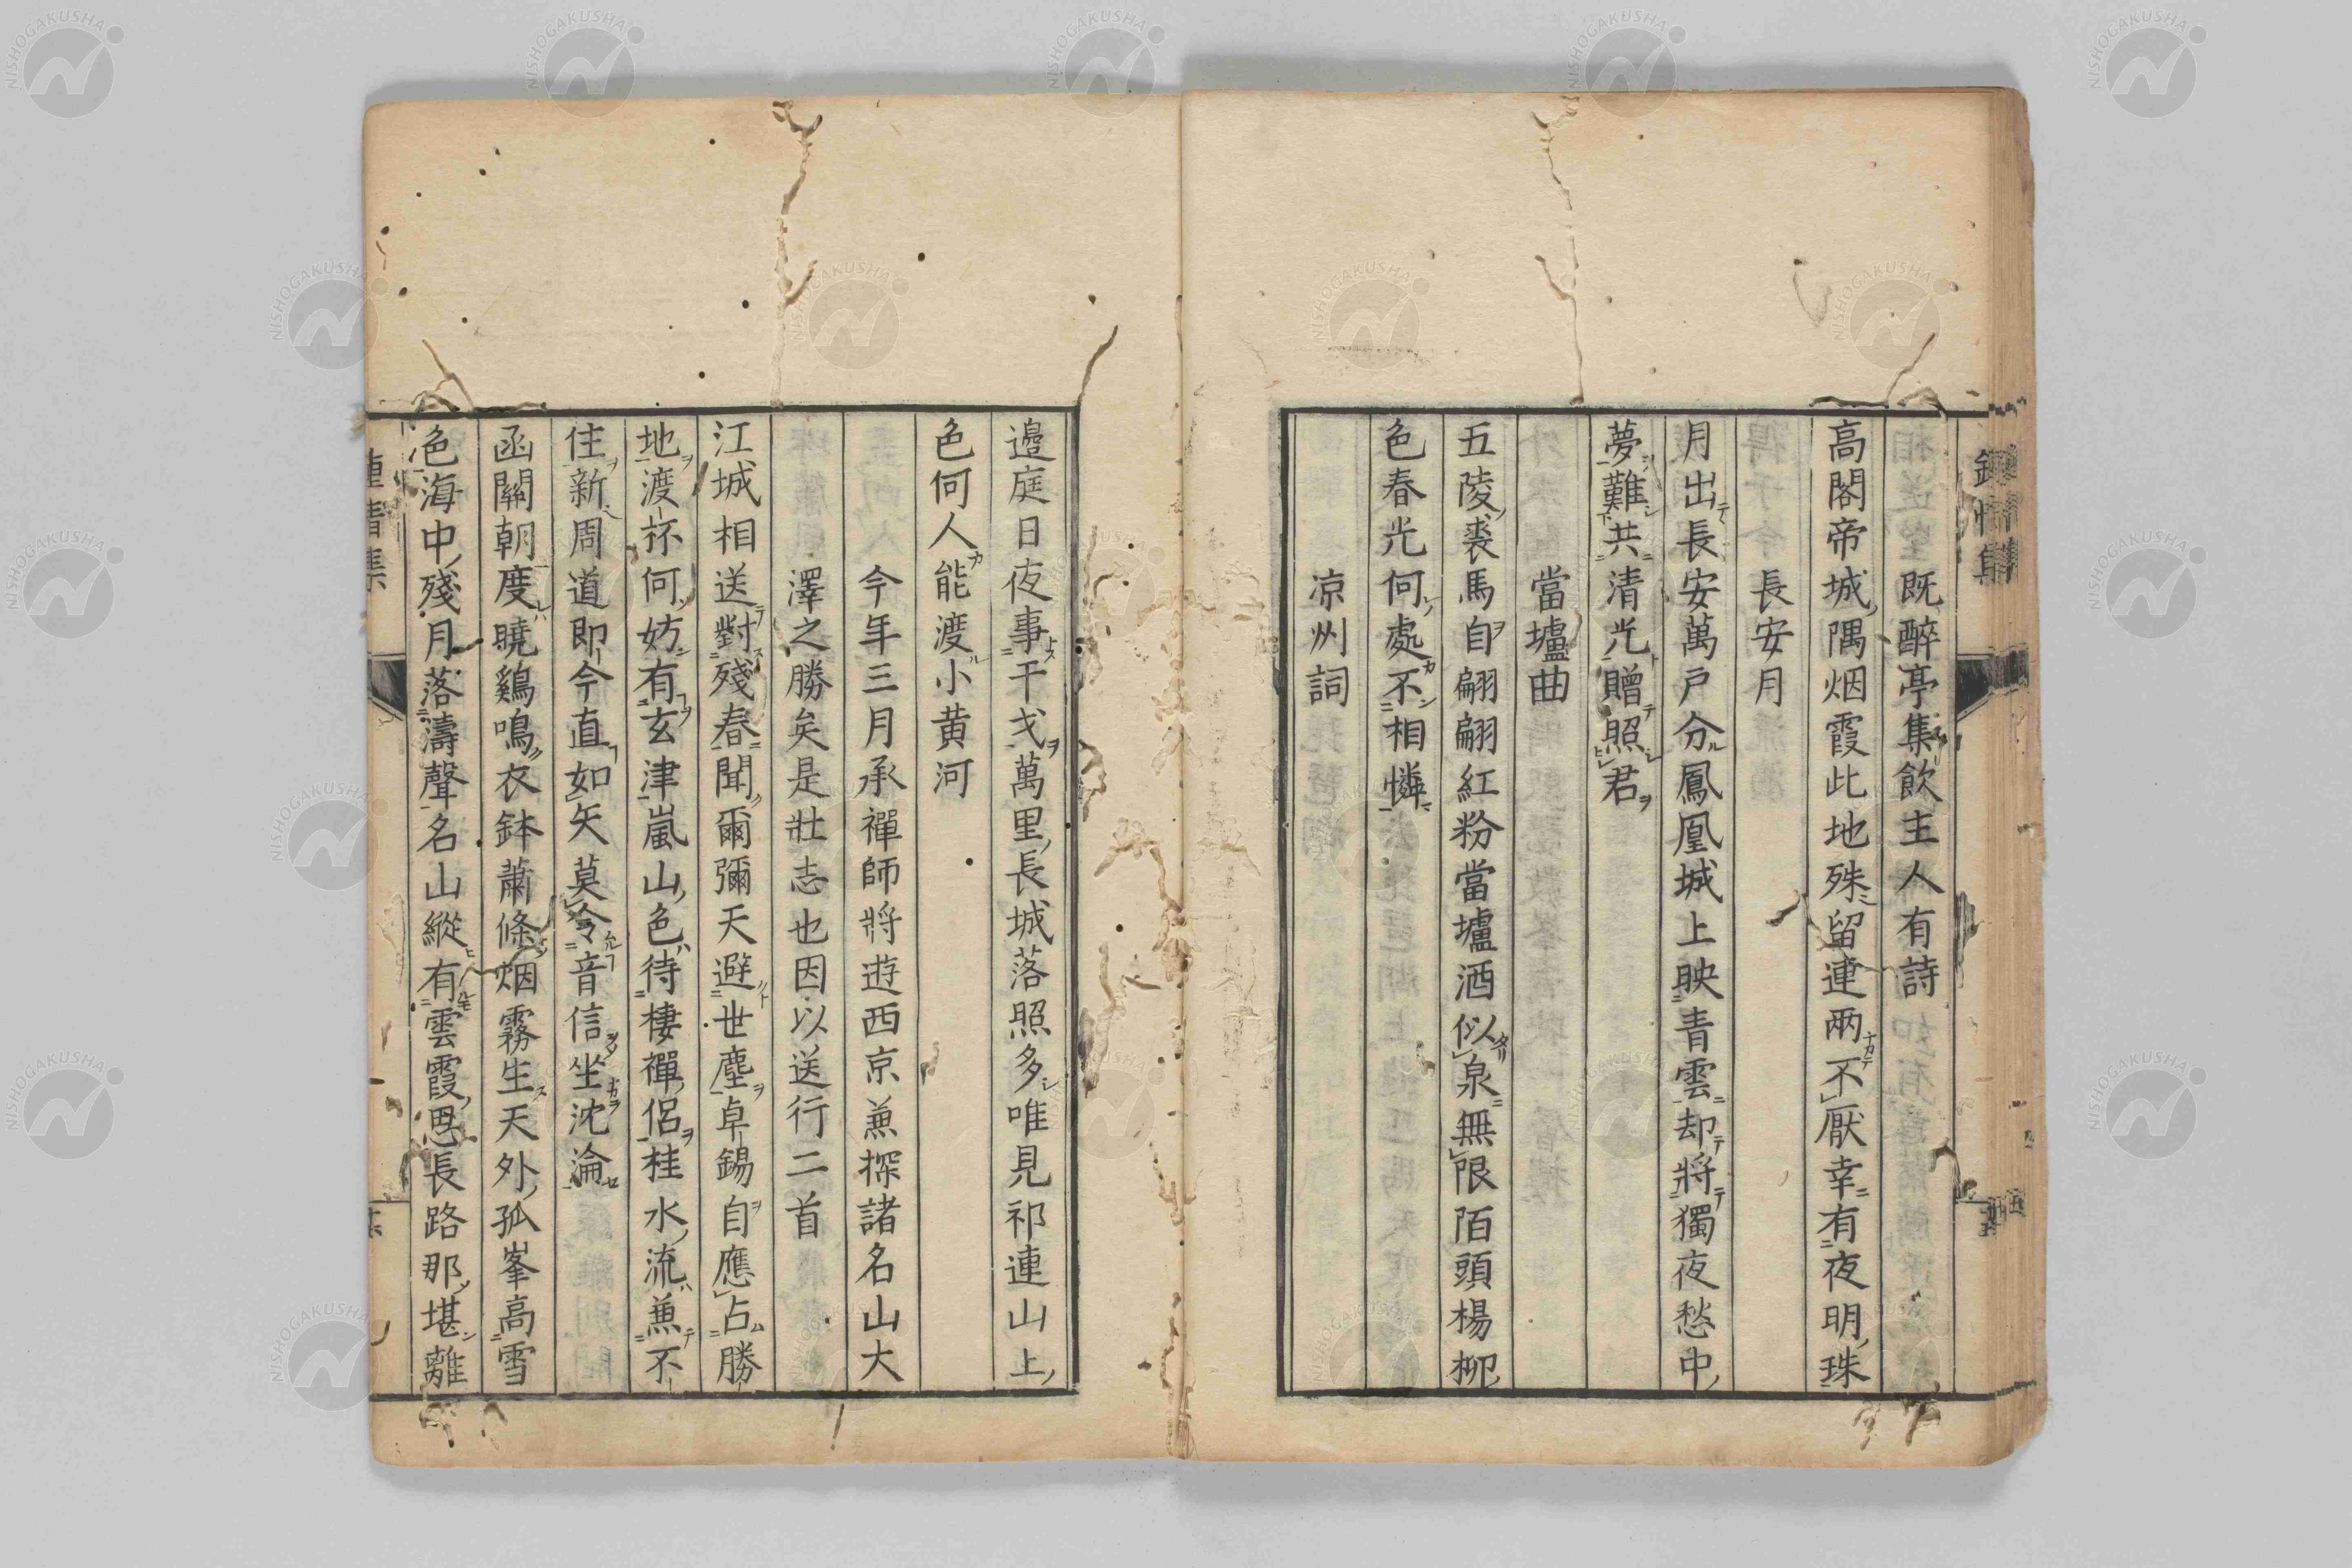 既醉亭集飲主人有詩
高閣帝城隅烟霞此地殊留連兩不厭幸有夜明珠
長安月
月出長安萬戸分鳳凰城上映青雲却將獨夜愁中
夢難共清光贈照君
當壚曲
五陵裘馬自翩翩紅粉當壚酒似泉無限陌頭楊柳
色春光何處不相憐
凉州詞
邉庭日夜事干戈萬里長城落照多唯見祁連山上
色何人能渡小黄河
今年三月承禪師將遊西京兼探諸名山大
澤之勝矣是壯志也因以送行二首
江城相送對殘春聞爾彌天避世塵卓錫自應占勝
地渡杯何妨有玄津嵐山色待棲禪侶桂水流兼不
住新周道即今直如矢莫令音信坐沈淪
函關朝度曉鷄鳴衣鉢蕭條烟霧生天外孤峯高雪
色海中殘月落濤聲名山縱有雲霞思長路那堪離
NISHOGAKUSHA